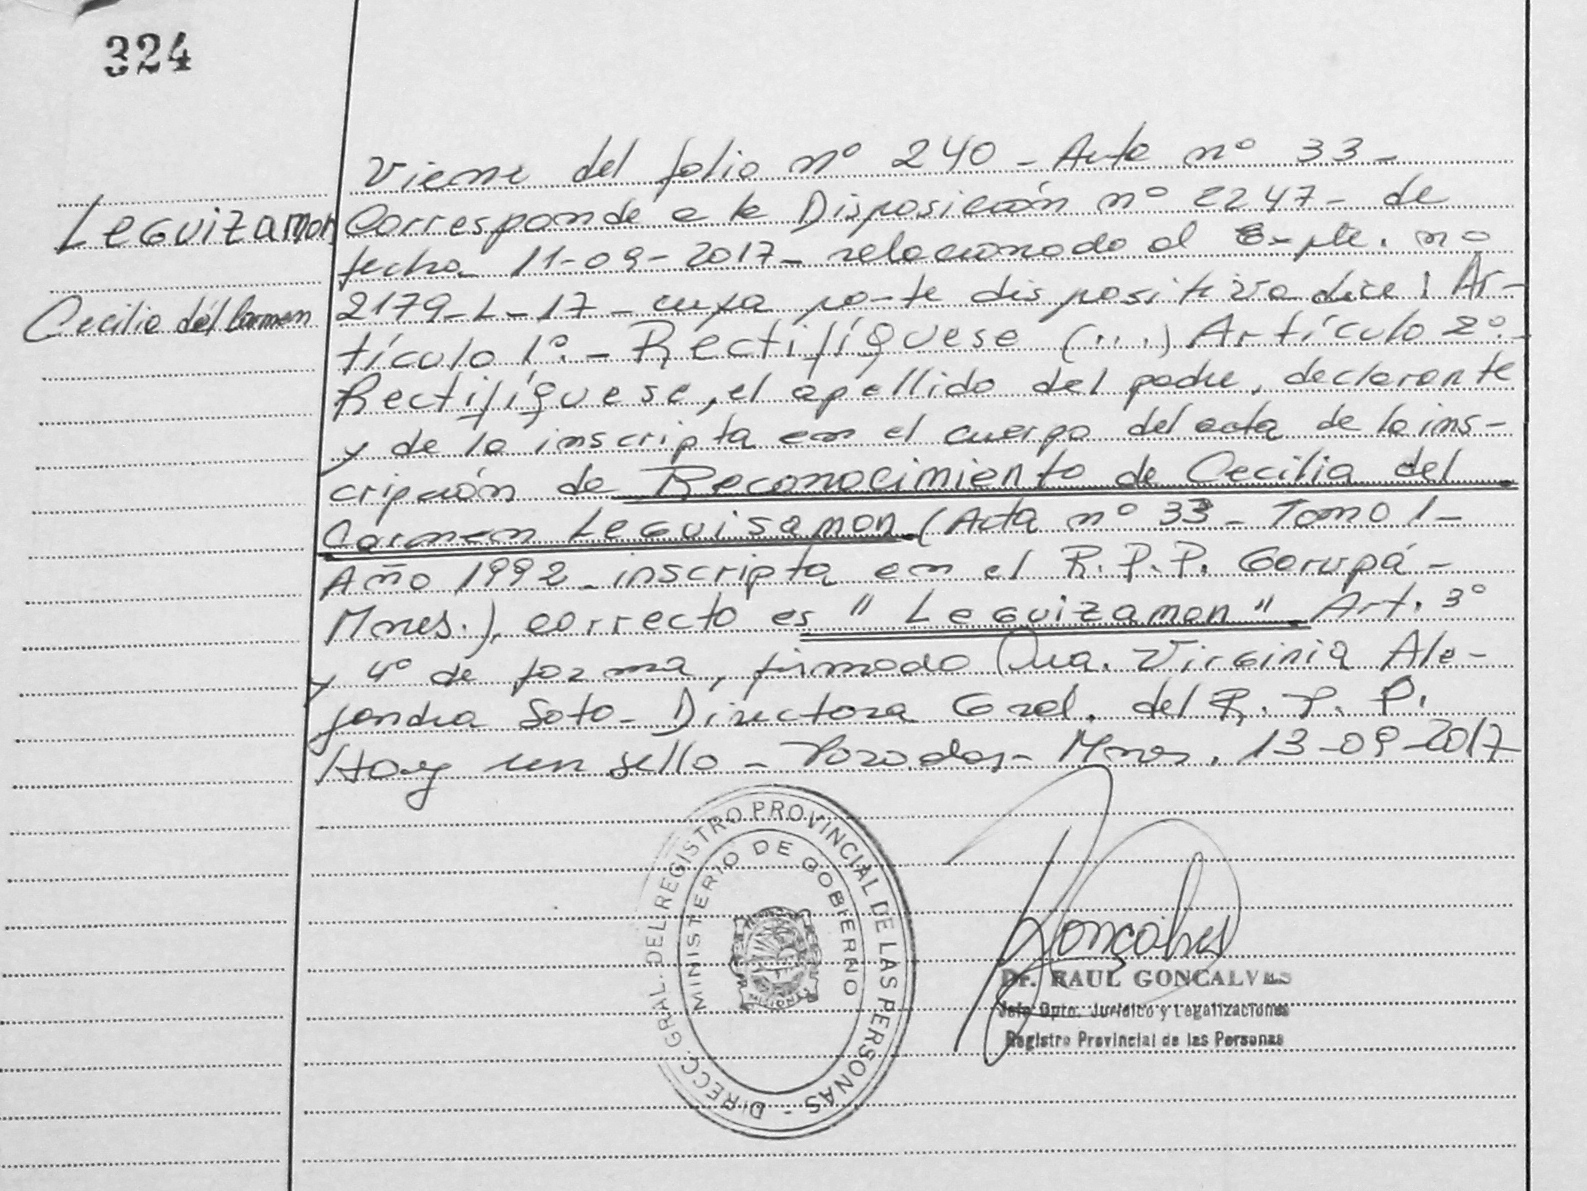 324
Viene del folio nº 240 - Acta nº 33 -
Leguizamon
Corresponde a la Disposición nº 2247 - de
fecha 11-09-2017 - relacionado al Expte. nº
Cecilia del Carmen
2179-L-17 - cuya parte dispositiva dice: Ar-
tículo 1º. - Rectifíquese (...) Artículo 2º. -
Rectifíquese, el apellido del padre, declarante
y de la inscripta en el cuerpo del acta de la ins-
cripción de Reconocimiento de Cecilia del
Carmen Leguisamon (Acta nº 33 - Tomo 1 -
Año 1992 - inscripta en el R.P.P. Garupá -
Mnes.), correcto es "Leguizamon" Art. 3º
y 4º de forma, firmado Dra. Virginia Ale-
jandra Soto - Directora Gral. del R.P.P.
Hay un sello - Posadas - Mnes. 13-09-2017
DIRECC. GRAL. DEL REGISTRO PROVINCIAL DE LAS PERSONAS -
MINISTERIO DE GOBIERNO
MISIONES
Goncalves
Dr. RAUL GONCALVES
Jefe Dpto. Jurídico y Legalizaciones
Registro Provincial de las Personas